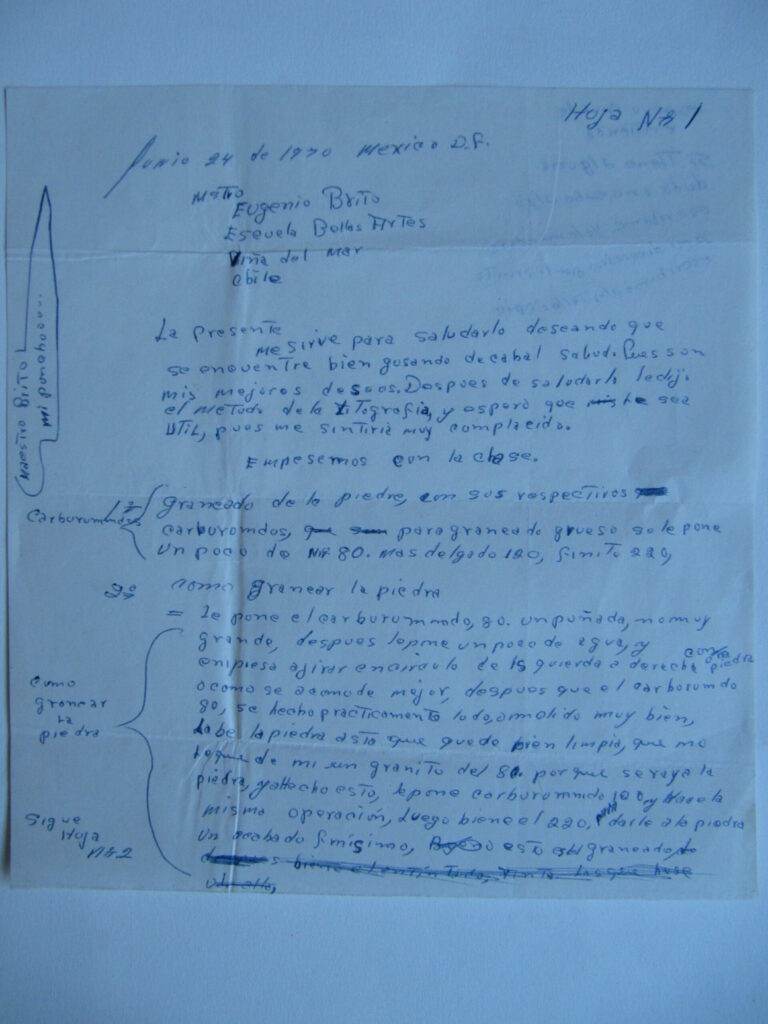 Hoja Nº 1
Junio 24 de 1970 Mexico D.F.
Mstro
Eugenio Brito
Escuela Bellas Artes
Viña del Mar
Chile
Maestro Brito
La presente
me sirve para saludarlo deseando que
se encuentre bien gosando de cabal salud. Pues son
mis mejores deseos. Despues de saludarlo le dij.
el metodo de la Litografia, y espero que le sea
util, pues me sintiria muy complacido.
Empesemos con la clase.
Carburummdos
1º graneado de la piedre, con sus respectivos
carburomdos, que son para graneado grueso se le pone
un poco de Nº 80. mas delgado 120, finito 220,
2º como granear la piedra
= le pone el carburummdo, 80. un puñado, no muy
grande, despues le pone un poco de agua, y
empiesa a jirar en circulo de isquierda a derecha con otra piedra
o como se acomode mejor, despues que el carborumdo
80, se hecho practicamente lodo, o molido muy bien,
labe la piedra asta que quede bien limpia, que no
quede ni un granito del 80. porque se raya la
piedra, y ahecho esto, le pone carburummdo 120, y hace la
misma operación, Luego biene el 220, para darle a la piedra
un acabado finisimo, esto es el graneado,
biene el entintado, tinta
como
granear
la
piedra
Sigue
Hoja
Nº 2